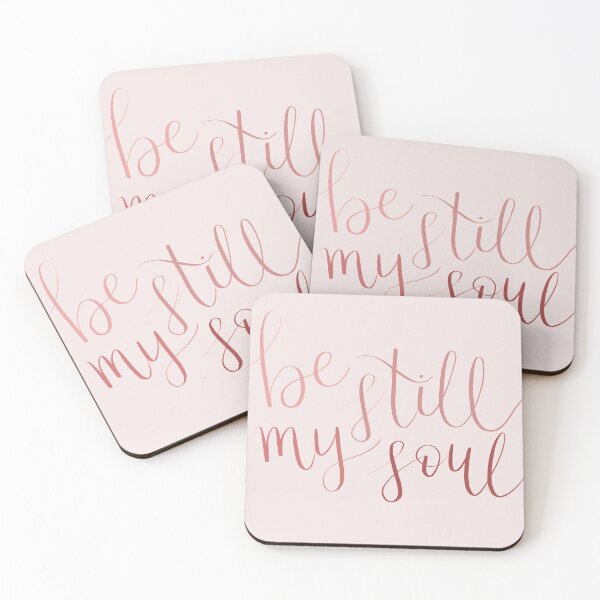 be still
be still
my soul
be still
my
be still
my soul